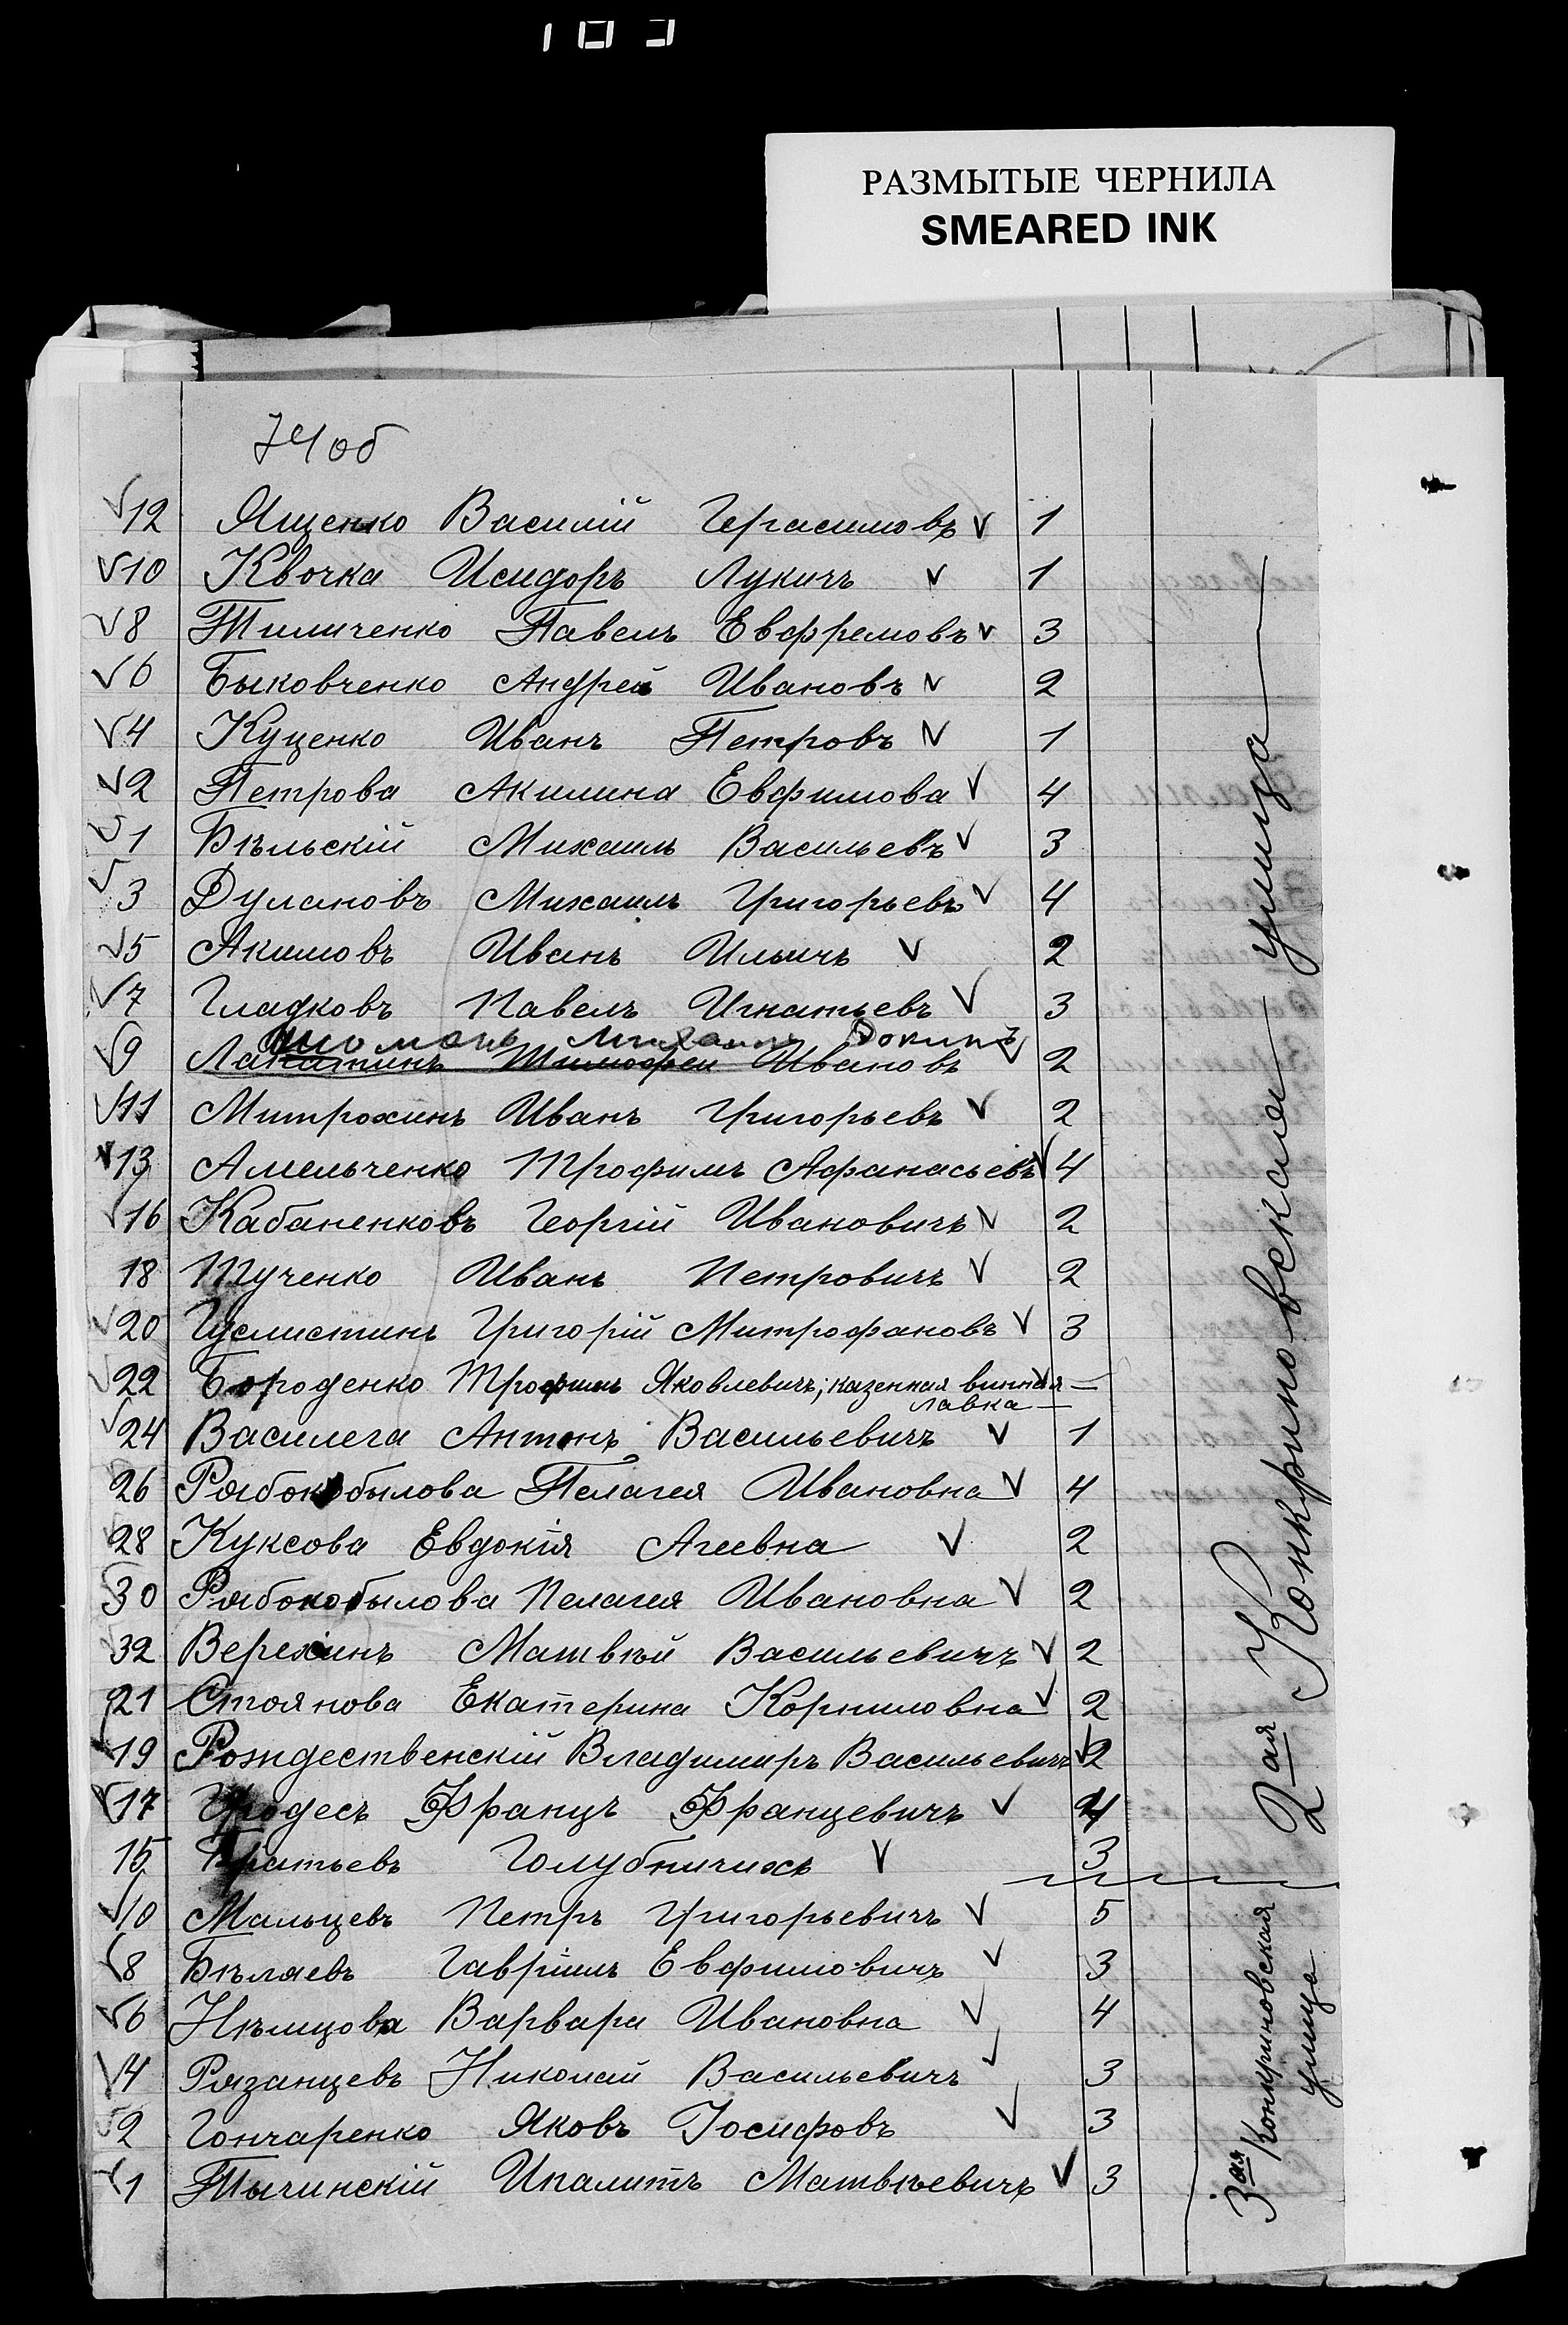 103
РАЗМЫТЫЕ ЧЕРНИЛА
SMEARED INK
74 об
12 Ященко Василій Герасимовъ 1
10 Квочка Исидоръ Лукичъ 1
8 Тиличенко Павелъ Евфремовъ 3
6 Быковченко Андрей Ивановъ 2
4 Куценко Иванъ Петровъ 1
2 Петрова Акилина Евфимова 4
1 Бѣльскій Михаилъ Васильевъ 3
3 Дулановъ Михаилъ Григорьевъ 4
5 Акимовъ Иванъ Ильичъ 2
7 Гладковъ Павелъ Игнатьевъ 3
Михаилъ
9 Лапатинъ Тимофей Ивановъ 2
11 Митрохинъ Иванъ Григорьевъ 2
13 Амельченко Трофимъ Афанасьевъ 4
16 Кабаненковъ Георгій Ивановичъ 2
18 Тученко Иванъ Петровичъ 2
20 Гуслистинъ Григорій Митрофановъ 3
22 Бороденко Трофимъ Яковлевичъ; казенная винная —
лавка —
24 Василега Антонъ Васильевичъ 1
26 Рябокобылова Пелагея Ивановна 4
28 Куксова Евдокія Агеевна 2
30 Рябокобылова Пелагея Ивановна 2
32 Верехинъ Матвѣй Васильевичъ 2
21 Стоянова Екатерина Корниловна 2
19 Рождественскій Владимиръ Васильевичъ 2
17 Францъ Францевичъ 4
15 Братьевъ Голубничихъ 3
10 Мальцевъ Петръ Григорьевичъ 5
8 Бѣляевъ Гавріилъ Евфимовичъ 3
6 Нѣмцова Варвара Ивановна 4
4 Рязанцевъ Николай Васильевичъ 3
2 Гончаренко Яковъ Іосифовъ 3
1 Тычинскій Ипалитъ Матвѣевичъ 3
2ая Конкриновская улица
3ая Конкриновская
улица